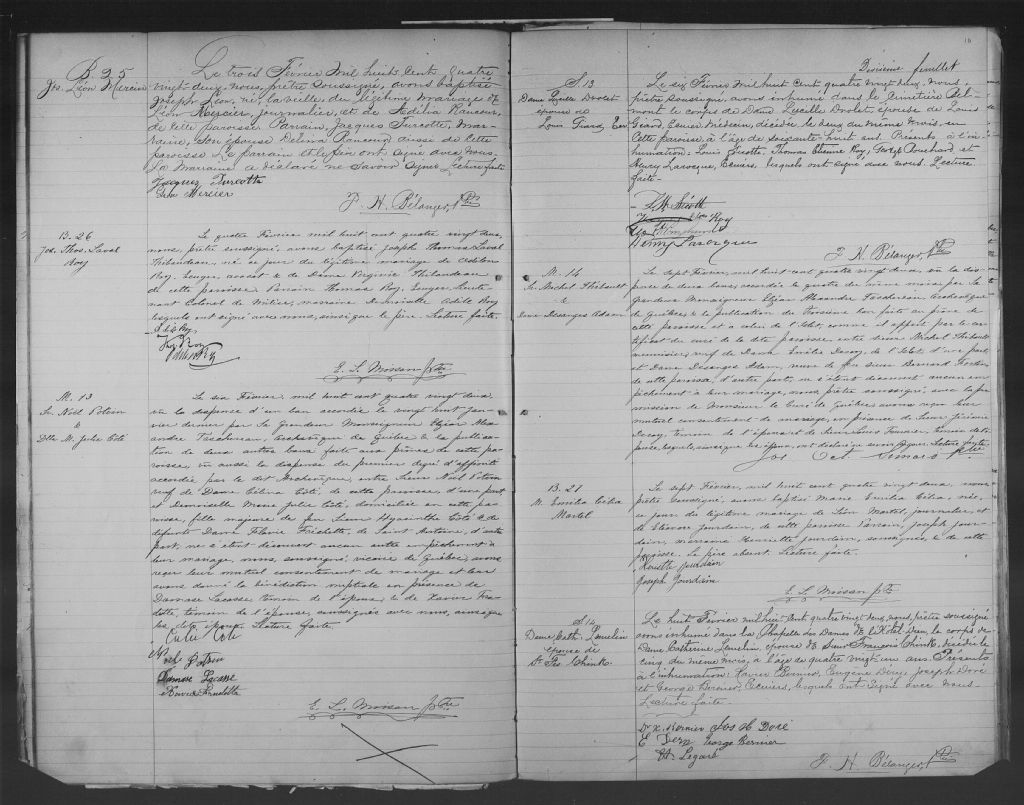 B. 25
Jos. Léon Mercier
Le trois Février mil huit cent quatre
vingt deux, nous, prêtre soussigné, avons baptisé
Joseph Léon, né la veille, du légitime mariage de
Léon Mercier, journalier, et de Adélia Rancour,
de cette paroisse. Parrain Jacques Turcotte, Mar-
raine, son épouse Délina Rancour aussi de cette
paroisse. Le parrain et le père ont signé avec nous.
la Marraine a déclaré ne savoir signer. Lecture faite
Jacques Turcotte
Léon Mercier
F. H. Bélanger, Ptre
B. 26
Jos. Thos. Laval
Roy
Le quatre Février mil huit cent quatre vingt deux,
nous, prêtre soussigné, avons baptisé Joseph Thomas Laval
Thibaudeau, né ce jour du légitime mariage de
Roy, Ecuyer, avocat & de Dame Virginie Thibaudeau
de cette paroisse. Parrain Thomas Roy, Ecuyer, Lieute-
nant Colonel de Milice, marraine Demoiselle Adèle Roy
lesquels ont signé avec nous, ainsi que le père. Lecture faite.
Adèle Roy,
Thos Roy
E. L. Moisan Ptre
M. 13
Sr. Noël Potvin
&
Dlle M. Julie Côté
Le six Février, mil huit cent quatre vingt deux
vu la dispense d'un ban accordée le vingt huit jan-
vier dernier par Sa Grandeur Monseigneur Elzéar Alex-
andre Taschereau, Archevêque de Québec & la publica-
tion de deux autres bans faite aux prônes de cette pa-
roisse, vu aussi la dispense du premier degré d'affinité
accordée par le dit Archevêque, entre Sieur Noël Potvin
veuf de Dame Célina Côté, de cette paroisse, d'une part
et Demoiselle Marie Julie Côté, domiciliée en cette pa-
roisse, fille majeure de feu Sieur Hyacinthe Côté & de
défunte Dame Flavie Fréchette, de Saint Antoine, d'autre
part, ne s'étant découvert aucun autre empêchement à
leur mariage, nous, soussigné, vicaire de Québec, avons
reçu leur mutuel consentement de mariage et leur
avons donné la bénédiction nuptiale en présence de
Damase Lacasse témoin de l'époux & de Xavier
témoin de l'épouse, soussignés avec nous, ainsi que
les dits époux. Lecture faite.
Julie Côté
Noël Potvin
Damase Lacasse
E. L. Moisan Ptre
Deuxième feuillet
S. 13
Dame Luzelle Drolet
épouse de
Louis Giard, Ecr
Le six Février mil huit cent quatre vingt deux, nous,
prêtre soussigné, avons inhumé dans le Cimetière Bel-
mont le corps de Dame Luzelle Drolet épouse de Louis
Giard, Ecuier, Médecin, décédée le deux du même mois, en
cette paroisse à l'âge de soixante huit ans. Présents à l'in-
humation: Louis Turcotte, Thomas Etienne Roy,
Henry Larocque, Ecuiers, lesquels ont signé avec nous. Lecture
faite.
Roy
Henry Larocque
F. H. Bélanger, Ptre
M. 14
Sr. Michel Thibault
&
Dame Desanges Adam
Le sept Février, mil huit cent quatre vingt deux, vu la dis-
pense de deux bans, accordée le quatre du même mois par Sa
Grandeur Monseigneur Elzéar Alexandre Taschereau, Archevêque
de Québec, & la publication du troisième ban faite au prône de
cette paroisse et à celui de l'Islet, comme il appert par le cer-
tificat du curé de la dite paroisse, entre Sieur Michel Thibault
menuisier, veuf de Dame Emélie Decoy, de l'Islet, d'une part,
et Dame Desanges Adam, veuve de feu Sieur Bernard Fortin
de cette paroisse, d'autre part, ne s'étant découvert aucun em-
pêchement à leur mariage, nous, prêtre soussigné, avec la per-
mission de Monsieur le Curé de Québec avons reçu leur
mutuel consentement de mariage, en présence de Sieur
Decoy, témoin de l'époux et de Sieur Louis Fournier, témoin de l'é-
pouse, lesquels, ainsi que les époux, ont déclaré ne savoir signer. Lecture faite
Jos Oct Simard Ptre
B. 27
M. Emilia Célia
Martel
Le sept Février, mil huit cent quatre vingt deux, nous
prêtre soussigné, avons baptisé Marie Emilia Célia, née
ce jour du légitime mariage de Léon Martel, journalier, et
de Eléonore Jourdain, de cette paroisse. Parrain, Joseph Jour-
dain, marraine Henriette Jourdain, soussignés, & de cette
paroisse. Le père absent. Lecture faite.
Henriette Jourdain
Joseph Jourdain
E. L. Moisan Ptre
S. 14
Dame Cath. Lemelin
épouse de
Sr. Frs Chink
Le huit Février mil huit cent quatre vingt deux, nous, prêtre soussigné
avons inhumé dans la Chapelle des Dames de l'Hotel Dieu le corps de
Dame Catherine Lemelin, épouse de Sieur François Chink, décédée le
cinq du même mois, à l'âge de quatre vingt un ans. Présents
à l'inhumation: Xavier Bernier, Eugène Déry, Joseph Doré
et George Bernier, Ecuiers, lesquels ont signé avec nous.
Lecture faite.
Dr X. Bernier Jos H Doré
E Dery George Bernier
Legaré
F. H. Bélanger, Ptre